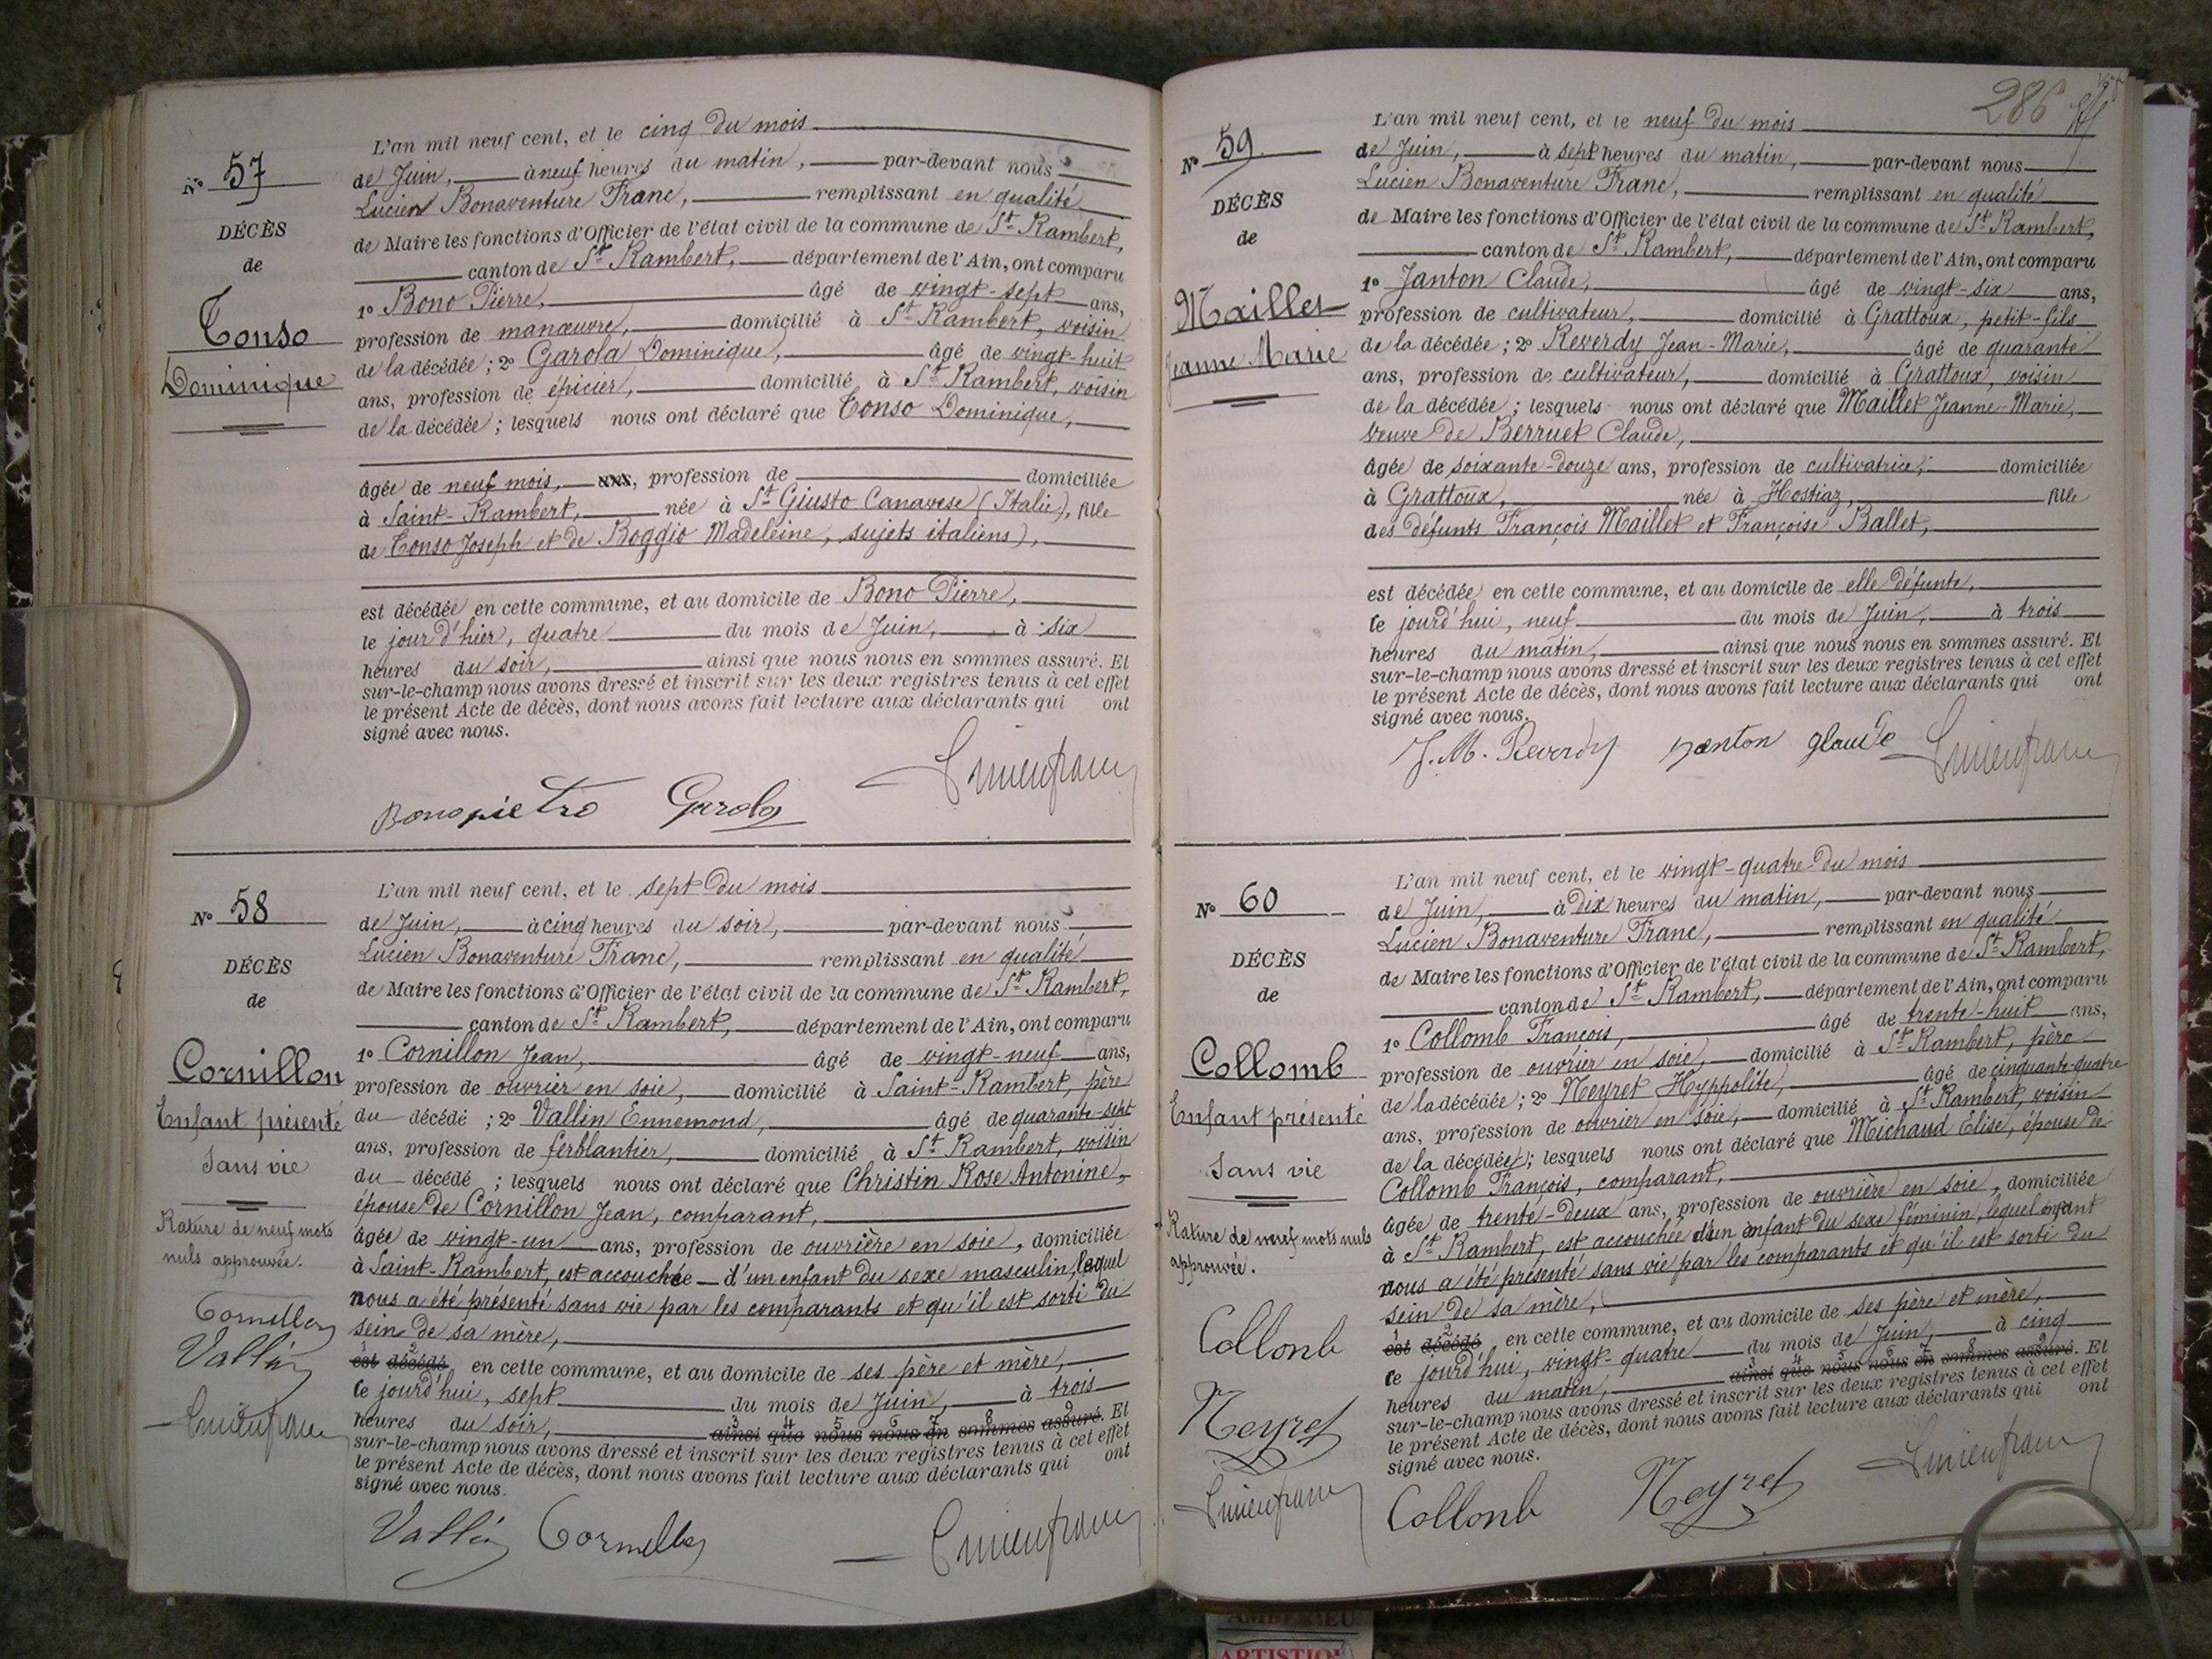 N° 57
DÉCÈS
de
Tonso
Dominique
L'an mil neuf cent, et le cinq du mois
de Juin, à neuf heures du matin, par-devant nous
Lucien Bonaventure Franc, remplissant en qualité
de Maire les fonctions d'Officier de l'état civil de la commune de St Rambert,
canton de St Rambert, département de l'Ain, ont comparu
1° Bono Pierre, âgé de vingt-sept ans,
profession de manœuvre, domicilié à St Rambert, voisin
de la décédée; 2° Garola Dominique, âgé de vingt-huit
ans, profession de épicier, domicilié à St Rambert, voisin
de la décédée; lesquels nous ont déclaré que Tonso Dominique,
âgée de neuf mois, profession de domiciliée
à Saint-Rambert, née à St Giusto Canavese (Italie), fille
de Tonso Joseph et de Boggio Madeleine, sujets italiens),
est décédée en cette commune, et au domicile de Bono Pierre,
le jour d'hier, quatre du mois de Juin, à six
heures du soir, ainsi que nous nous en sommes assuré. Et
sur-le-champ nous avons dressé et inscrit sur les deux registres tenus à cet effet
le présent Acte de décès, dont nous avons fait lecture aux déclarants qui ont
signé avec nous.
Bono pietro Garola Lucien franc
N° 58
DÉCÈS
de
Cornillon
Enfant présenté
Sans vie
Rature de neuf mots
nuls approuvée.
Cornillon
Vallin
Lucien franc
L'an mil neuf cent, et le sept du mois
de Juin, à cinq heures du soir, par-devant nous
Lucien Bonaventure Franc, remplissant en qualité
de Maire les fonctions d'Officier de l'état civil de la commune de St Rambert,
canton de St Rambert, département de l'Ain, ont comparu
1° Cornillon Jean, âgé de vingt-neuf ans,
profession de ouvrier en soie, domicilié à Saint-Rambert, père
du décédé; 2° Vallin Ennemond, âgé de quarante-sept
ans, profession de ferblantier, domicilié à St Rambert, voisin
du décédé; lesquels nous ont déclaré que Christin Rose Antonine,
épouse de Cornillon Jean, comparant,
âgée de vingt-un ans, profession de ouvrière en soie, domiciliée
à Saint-Rambert, est accouchée d'un enfant du sexe masculin, lequel
nous a été présenté sans vie par les comparants et qu'il est sorti du
sein de sa mère,
est décédé en cette commune, et au domicile de ses père et mère,
le jourd'hui, sept du mois de Juin, à trois
heures du soir, ainsi que nous nous en sommes assuré. Et
sur-le-champ nous avons dressé et inscrit sur les deux registres tenus à cet effet
le présent Acte de décès, dont nous avons fait lecture aux déclarants qui ont
signé avec nous.
Vallin Cornillon Lucien franc
286
N° 59
DÉCÈS
de
Maillet
Jeanne Marie
L'an mil neuf cent, et le neuf du mois
de Juin, à sept heures du matin, par-devant nous
Lucien Bonaventure Franc, remplissant en qualité
de Maire les fonctions d'Officier de l'état civil de la commune de St Rambert,
canton de St Rambert, département de l'Ain, ont comparu
1° Janton Claude, âgé de vingt-six ans,
profession de cultivateur, domicilié à Grattoux, petit-fils
de la décédée; 2° Reverdy Jean-Marie, âgé de quarante
ans, profession de cultivateur, domicilié à Grattoux, voisin
de la décédée; lesquels nous ont déclaré que Maillet Jeanne-Marie,
veuve de Berruet Claude,
âgée de soixante-douze ans, profession de cultivatrice, domiciliée
à Grattoux, née à Hostiaz, fille
des défunts François Maillet et Françoise Ballet,
est décédée en cette commune, et au domicile de elle défunte,
le jourd'hui, neuf du mois de Juin, à trois
heures du matin, ainsi que nous nous en sommes assuré. Et
sur-le-champ nous avons dressé et inscrit sur les deux registres tenus à cet effet
le présent Acte de décès, dont nous avons fait lecture aux déclarants qui ont
signé avec nous.
J. M. Reverdy Janton glaude Lucien franc
N° 60
DÉCÈS
de
Collomb
Enfant présenté
Sans vie
Rature de neuf mots nuls
approuvée.
Collonb
Neyret
Lucien franc
L'an mil neuf cent, et le vingt-quatre du mois
de Juin, à dix heures du matin, par-devant nous
Lucien Bonaventure Franc, remplissant en qualité
de Maire les fonctions d'Officier de l'état civil de la commune de St Rambert,
canton de St Rambert, département de l'Ain, ont comparu
1° Collomb François, âgé de trente-huit ans,
profession de ouvrier en soie, domicilié à St Rambert, père
de la décédée; 2° Neyret Hyppolite, âgé de cinquante-quatre
ans, profession de ouvrier en soie, domicilié à St Rambert, voisin
de la décédée; lesquels nous ont déclaré que Michaud Elise, épouse de
Collomb François, comparant,
âgée de trente-deux ans, profession de ouvrière en soie, domiciliée
à St Rambert, est accouchée d'un enfant du sexe féminin, lequel enfant
nous a été présenté sans vie par les comparants et qu'il est sorti du
sein de sa mère,
est décédé en cette commune, et au domicile de ses père et mère,
le jourd'hui, vingt-quatre du mois de Juin, à cinq
heures du matin, ainsi que nous nous en sommes assuré. Et
sur-le-champ nous avons dressé et inscrit sur les deux registres tenus à cet effet
le présent Acte de décès, dont nous avons fait lecture aux déclarants qui ont
signé avec nous.
Collonb Neyret Lucien franc
AMBERIEU
ARTISTIQU